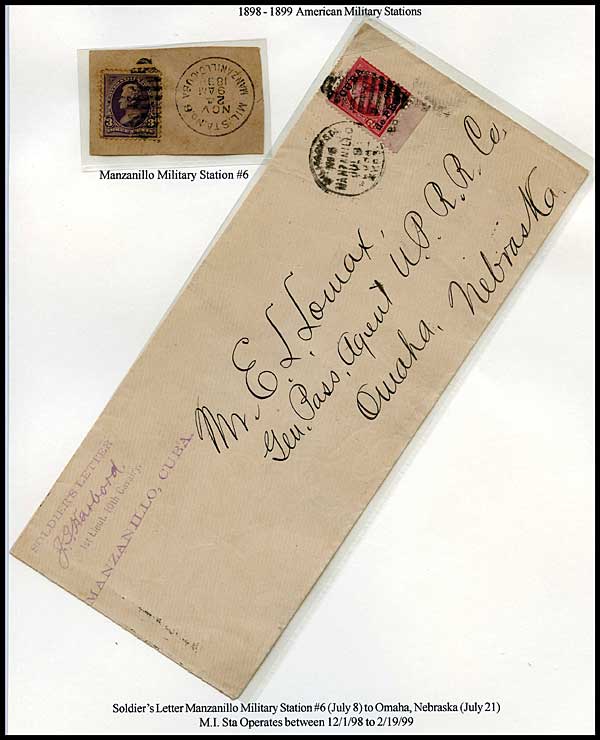 1898 - 1899 American Military Stations
MIL. STA. No 6
MANZANILLO, CUBA
NOV
24
9AM
1898
3
Manzanillo Military Station #6
CUBA
No 6
MANZANILLO
JUL 8
Mr. E. L. Lomax,
Gen. Pass. Agent U.P.R.R. Co,
Omaha, Nebraska.
SOLDIER'S LETTER
J G Harbord
1st Lieut. 10th Cavalry.
MANZANILLO, CUBA.
Soldier's Letter Manzanillo Military Station #6 (July 8) to Omaha, Nebraska (July 21)
M.I. Sta Operates between 12/1/98 to 2/19/99